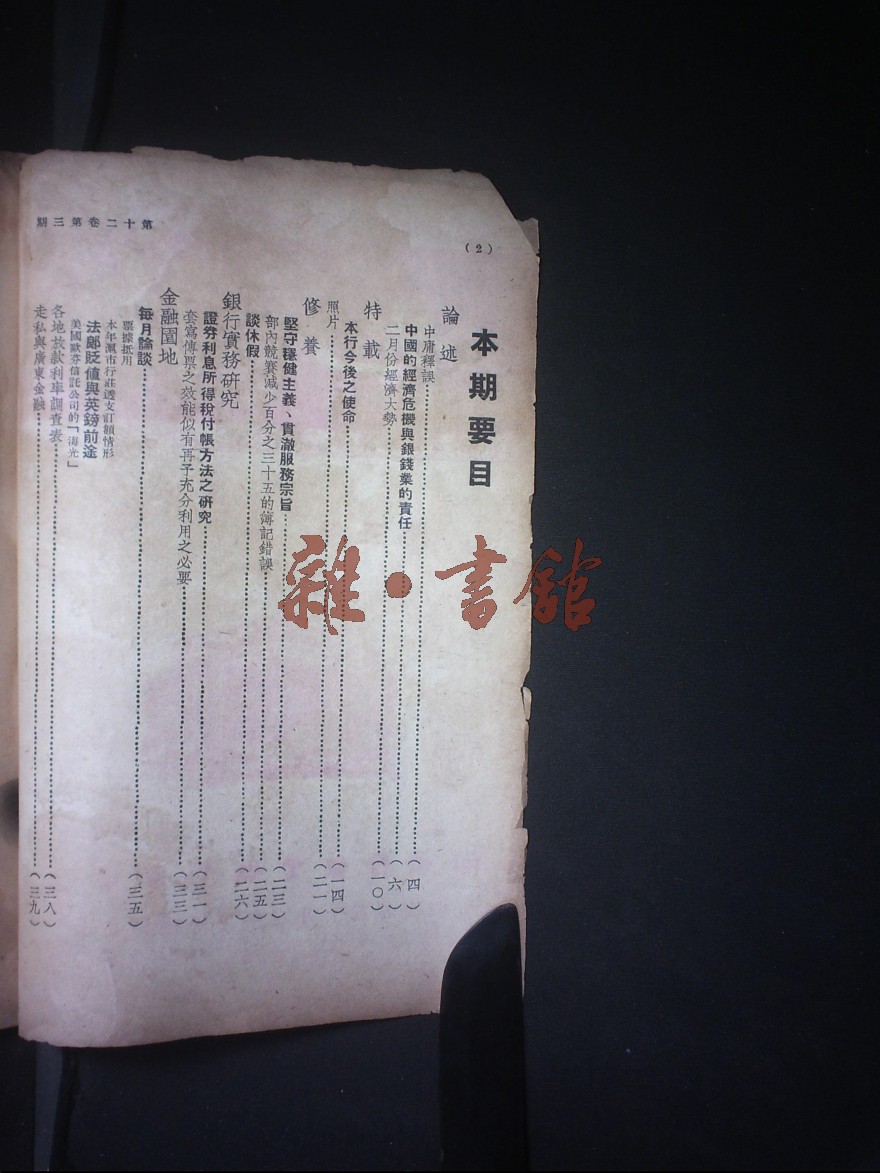 第十二卷第三期
（2）
本期要目
論述
中庸釋誤……………（四）
中國的經濟危機與銀錢業的責任……………（六）
二月份經濟大勢……………（一〇）
特載
本行今後之使命……………（一四）
照片……………（二一）
修養
堅守穩健主義、貫澈服務宗旨……………（二三）
部內競賽減少百分之三十五的簿記錯誤……………（二五）
談休假……………（二六）
銀行實務研究
證券利息所得稅付帳方法之研究……………（三一）
套寫傳票之效能似有再予充分利用之必要……………（三三）
金融園地
每月論談……………（三五）
票據抵用
本年滬市行莊透支訂額情形
法郎貶值與英鎊前途
美國歐芬信託公司的「海光」
各地放款利率調查表……………（三八）
走私與廣東金融……………（三九）
雜·書館